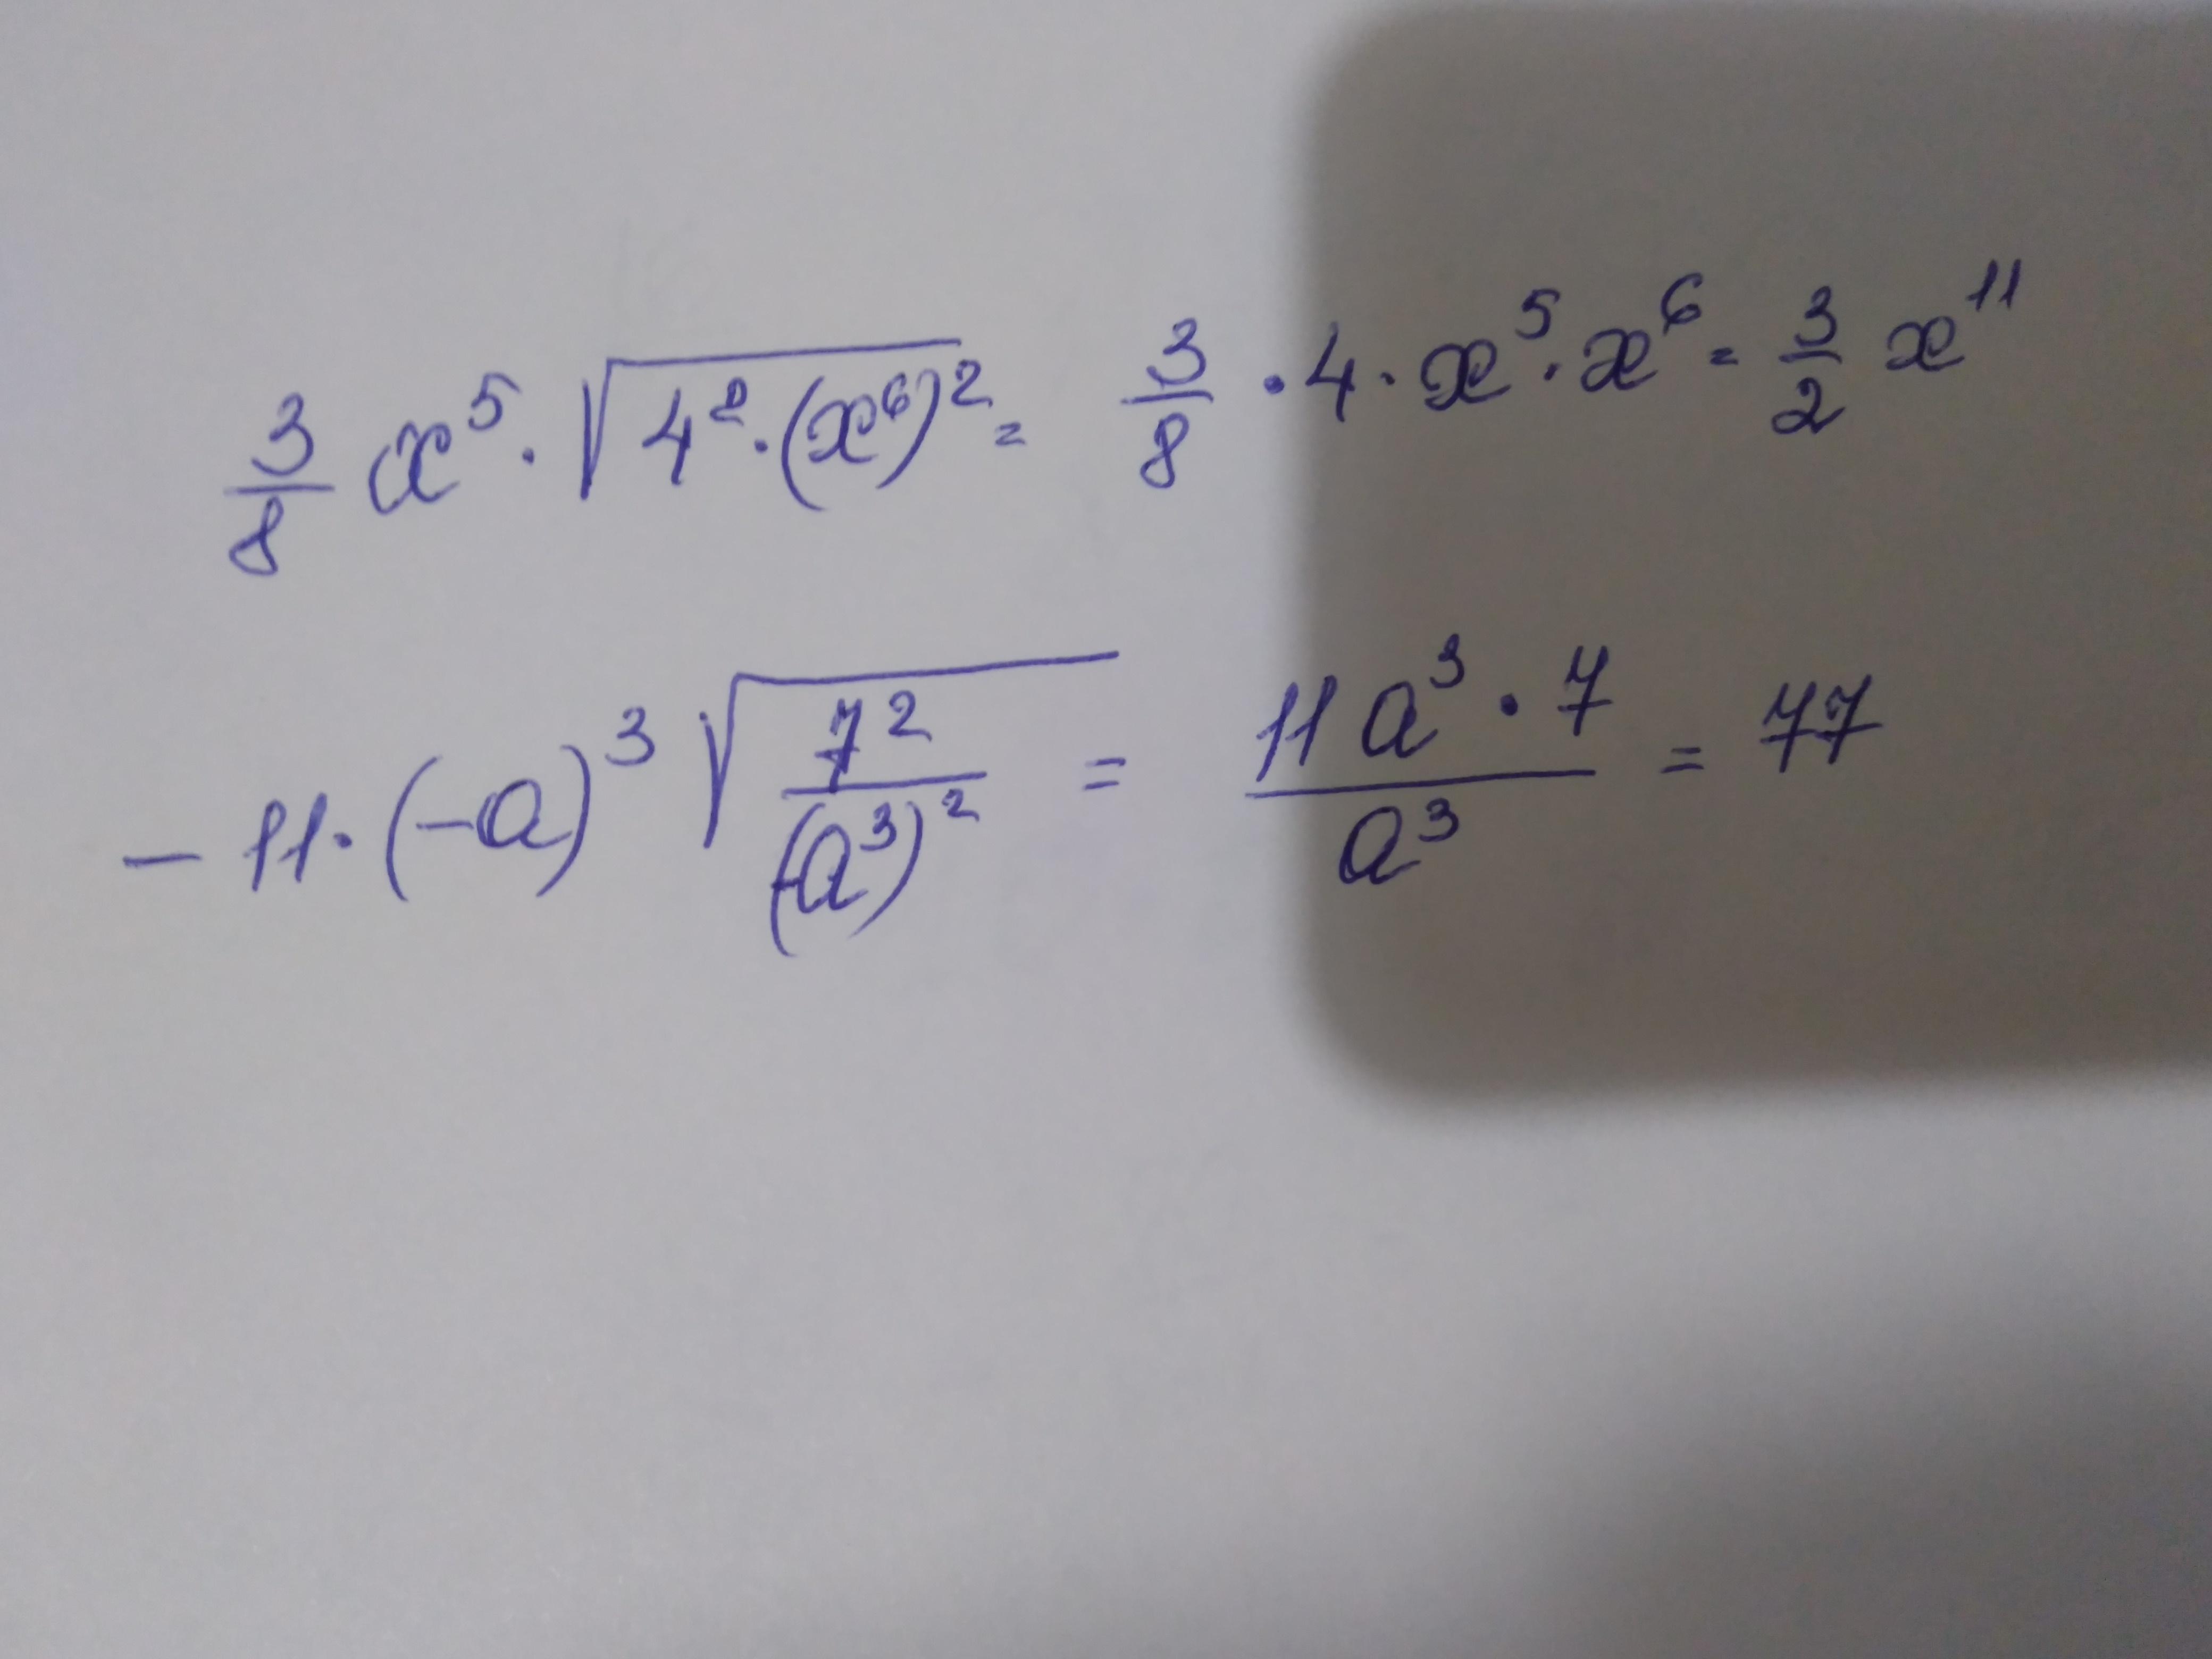 3/8 x⁵ · √(4² · (x⁶)²) = 3/8 · 4 · x⁵ · x⁶ = 3/2 x¹¹
− 11 · (−a)³ √(7²/(−a³)²) = (11a³ · 7)/a³ = 77